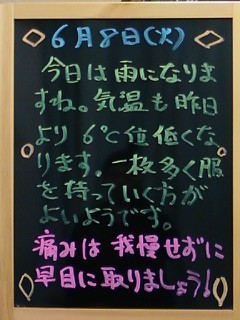 6月8日(火)
今日は雨になりま
すね。気温も昨日
より6℃位低くな
ります。一枚多く服
を持っていく方が
よいようです。
痛みは我慢せずに
早目に取りましょう!